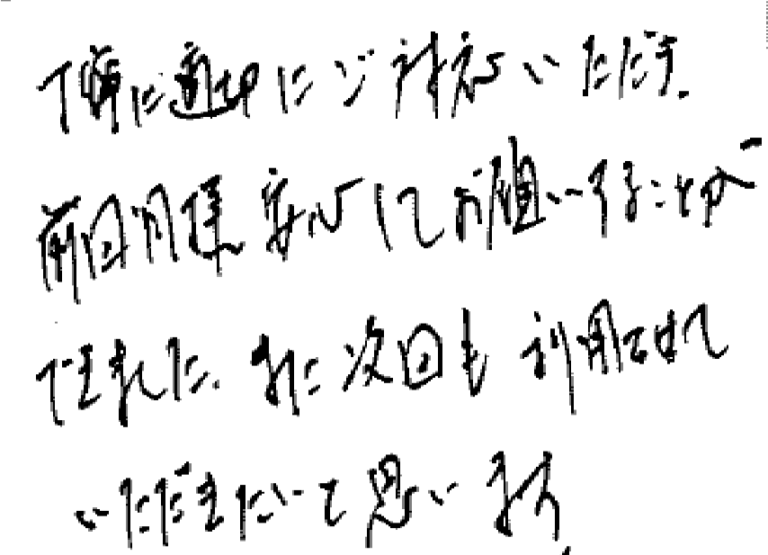 丁寧に適切にご対応いただき、
前回同様安心してお願いすることが
できました。また次回も利用させて
いただきたいと思います。